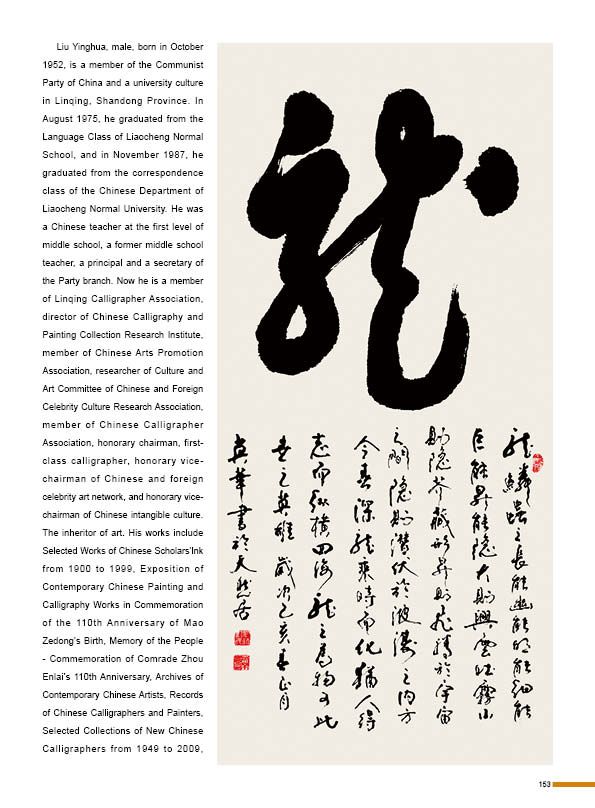 Liu Yinghua, male, born in October
1952, is a member of the Communist
Party of China and a university culture
in Linqing, Shandong Province. In
August 1975, he graduated from the
Language Class of Liaocheng Normal
School, and in November 1987, he
graduated from the correspondence
class of the Chinese Department of
Liaocheng Normal University. He was
a Chinese teacher at the first level of
middle school, a former middle school
teacher, a principal and a secretary of
the Party branch. Now he is a member
of Linqing Calligrapher Association,
director of Chinese Calligraphy and
Painting Collection Research Institute,
member of Chinese Arts Promotion
Association, researcher of Culture and
Art Committee of Chinese and Foreign
Celebrity Culture Research Association,
member of Chinese Calligrapher
Association, honorary chairman, first-
class calligrapher, honorary vice-
chairman of Chinese and foreign
celebrity art network, and honorary vice-
chairman of Chinese intangible culture.
The inheritor of art. His works include
Selected Works of Chinese Scholars'Ink
from 1900 to 1999, Exposition of
Contemporary Chinese Painting and
Calligraphy Works in Commemoration
of the 110th Anniversary of Mao
Zedong's Birth, Memory of the People
- Commemoration of Comrade Zhou
Enlai's 110th Anniversary, Archives of
Contemporary Chinese Artists, Records
of Chinese Calligraphers and Painters,
Selected Collections of New Chinese
Calligraphers from 1949 to 2009,
龍
龍鱗蟲之長能幽能明能細能
巨能昇能隱大則興雲吐霧小
則隱芥藏形昇則飛騰於宇宙
之間隱則潛伏於波濤之內方
今春深龍乘時而化猶人得
志而縱橫四海龍之為物可比
世之英雄 歲次己亥春正月
英華書於天然居
153